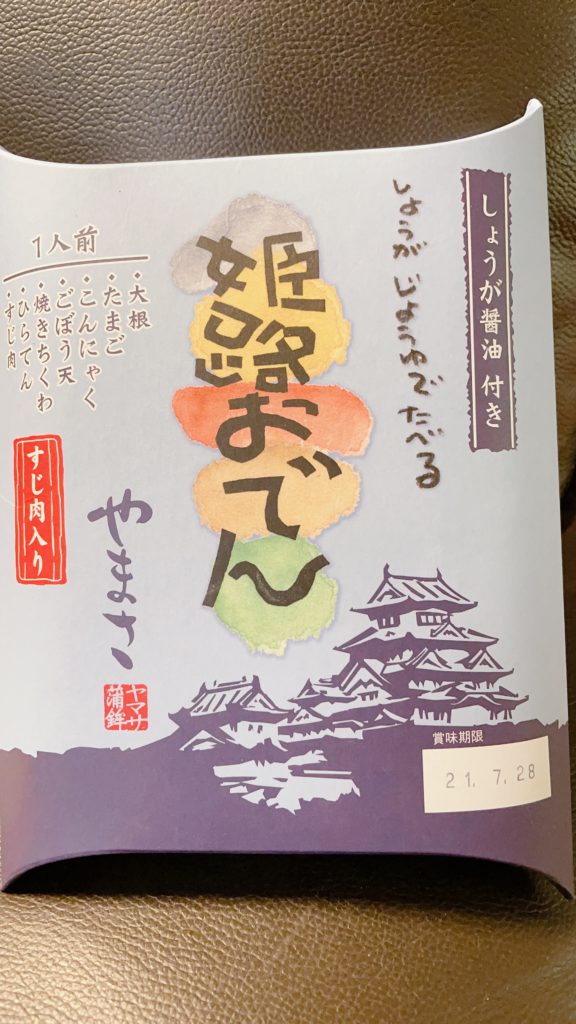 しょうが醤油 付き
しょうが じょうゆで たべる
姫路おでん
1人前
・大根
・たまご
・こんにゃく
・ごぼう天
・焼きちくわ
・ひらてん
・すじ肉
すじ肉入り
やまさ
ヤマサ
蒲鉾
賞味期限
21. 7. 28